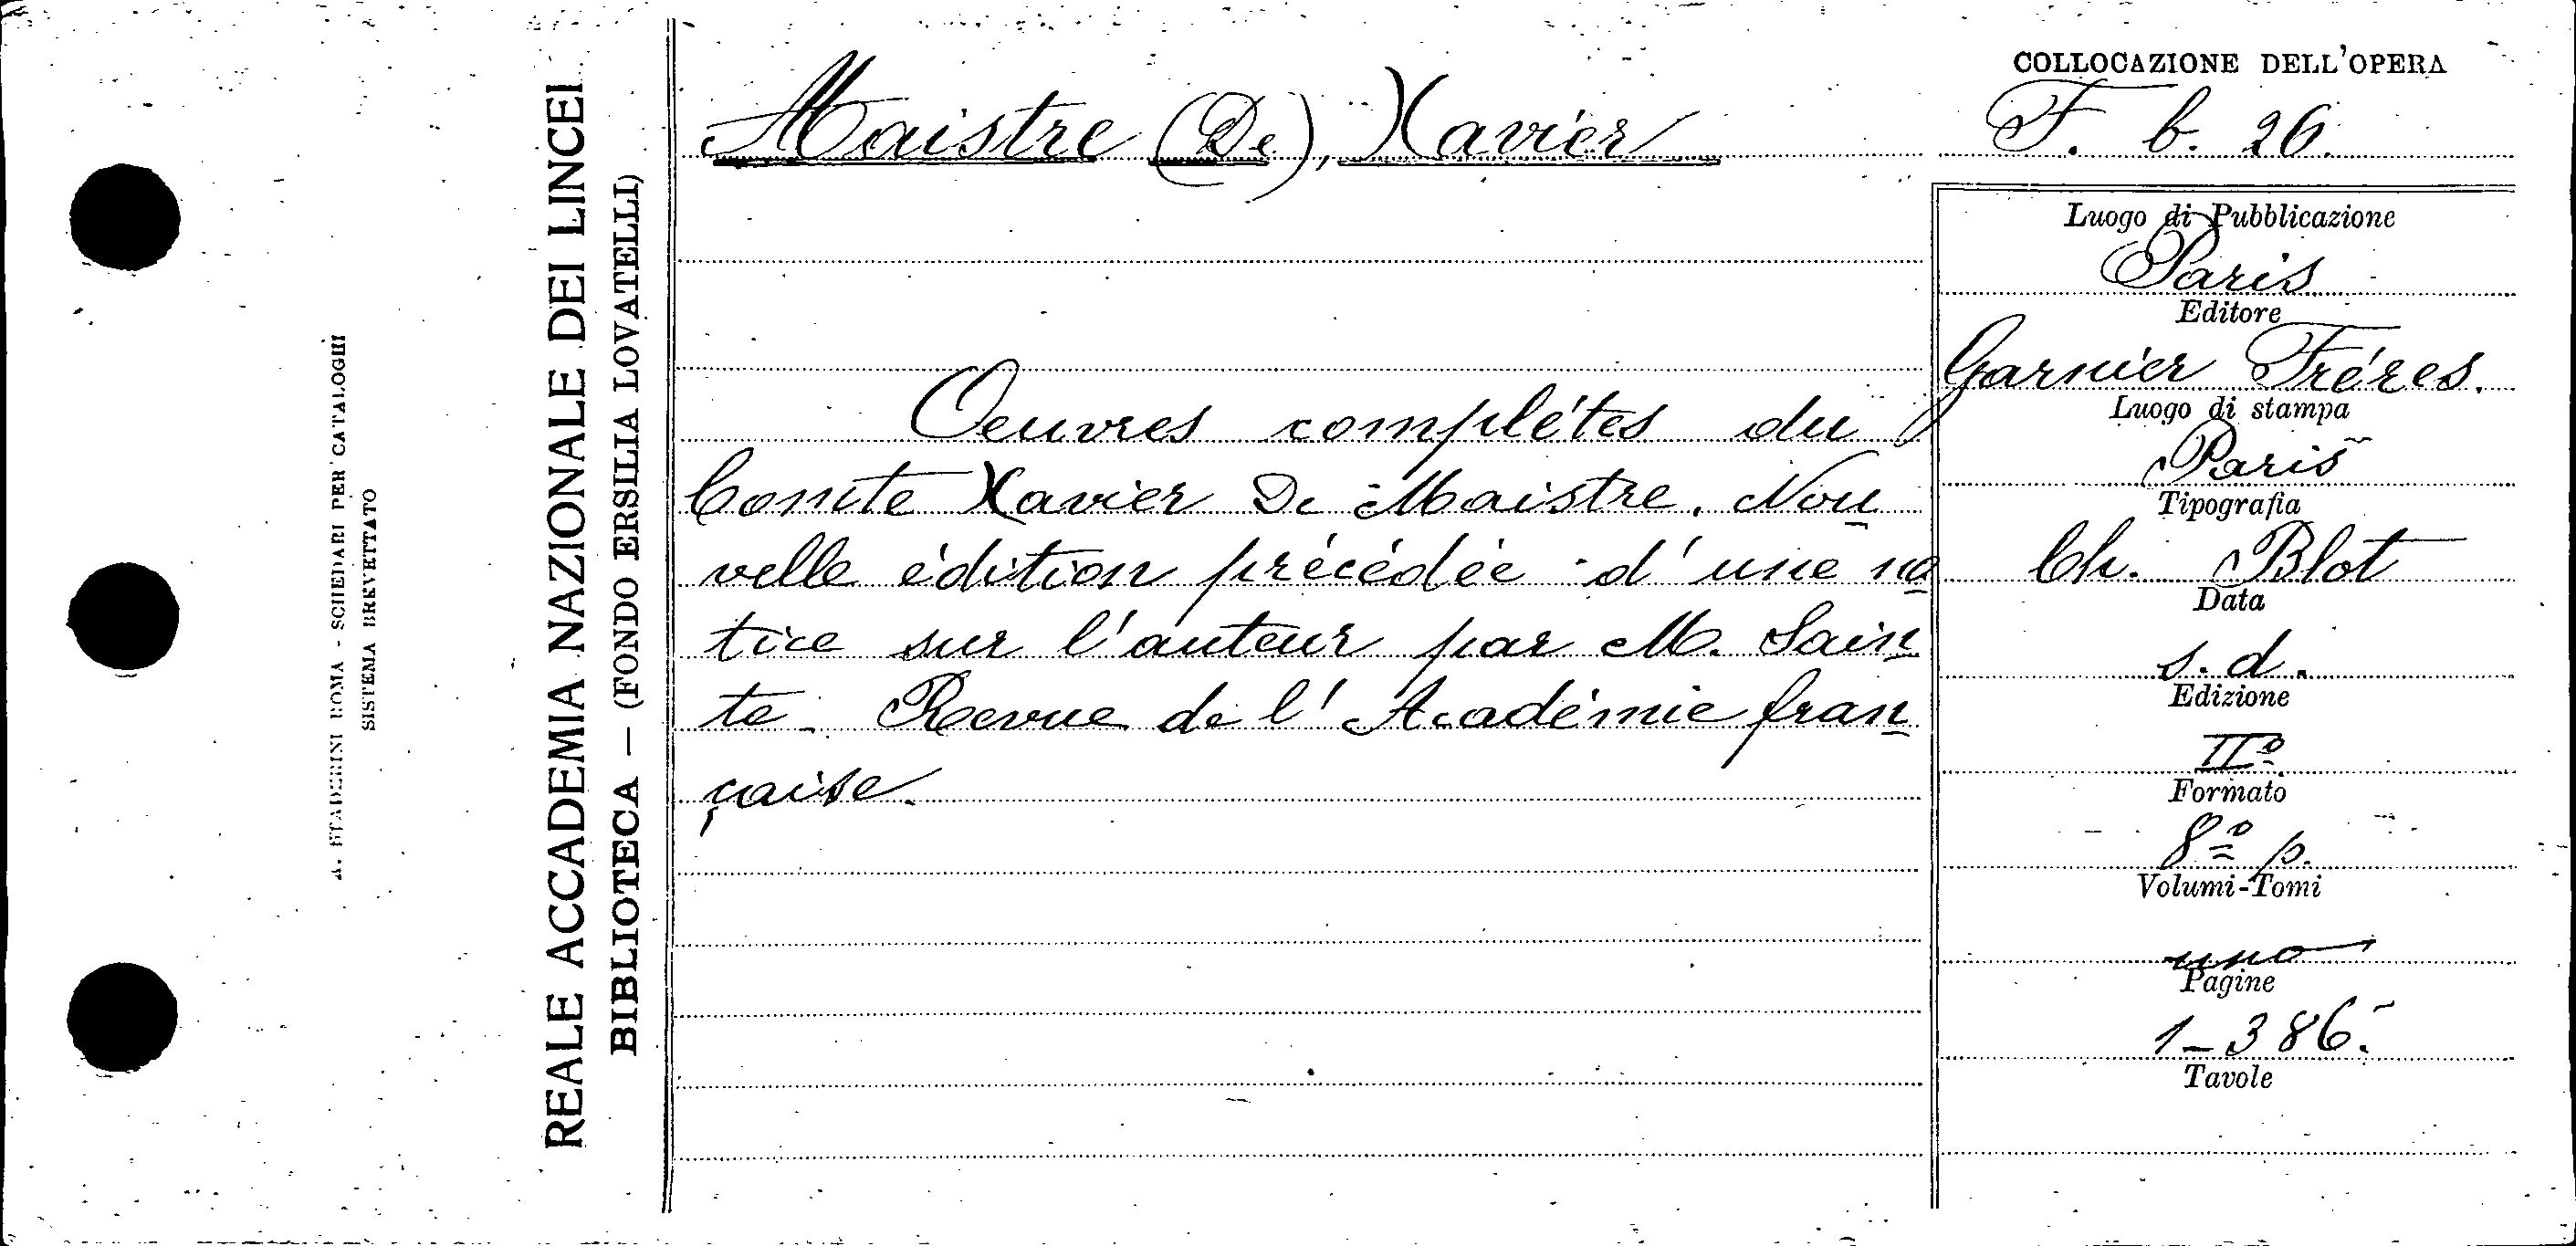 COLLOCAZIONE DELL'OPERA
Maistre (De), Xavier
F. b. 26.
REALE ACCADEMIA NAZIONALE DEI LINCEI
BIBLIOTECA — (FONDO ERSILIA LOVATELLI)
A. STADERINI ROMA - SCHEDARI PER CATALOGHI
SISTEMA BREVETTATO
Oeuvres complétes du
Comte Xavier De Maistre. Nou
velle édition précédée d'une no
tice sur l'auteur par M. Sain
te - Revue de l'Académie fran
çaise.
Luogo di Pubblicazione
Paris
Editore
Garnier Fréres.
Luogo di stampa
Paris
Tipografia
Ch. Blot
Data
s. d.
Edizione
IIª
Formato
8º p.
Volumi-Tomi
uno
Pagine
1-386.
Tavole